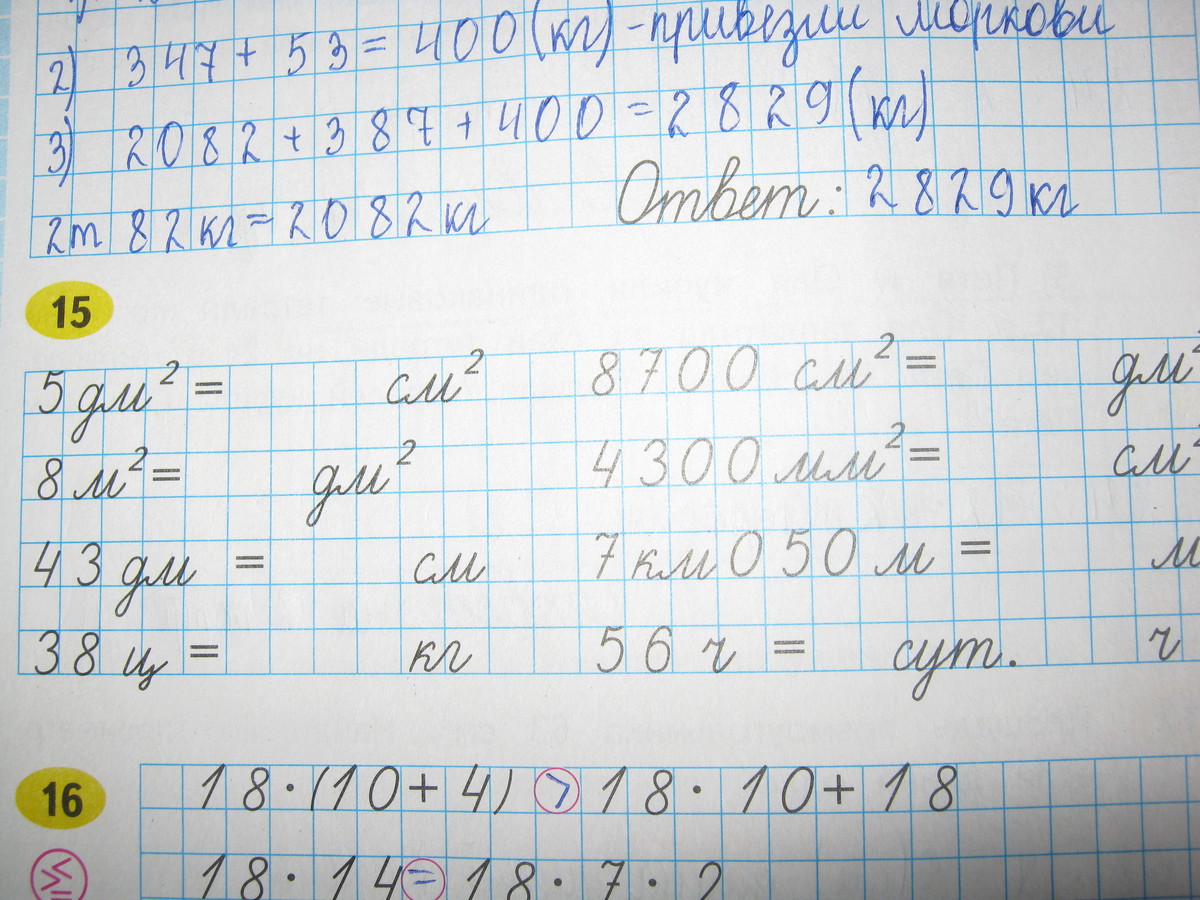 2) 347 + 53 = 400 (кг) - привезли моркови
3) 2082 + 387 + 400 = 2829 (кг)
2т 82кг = 2082кг Ответ: 2829кг
15
5 дм² = см² 8700 см² = дм²
8 м² = дм² 4300 мм² = см²
43 дм = см 7 км 050 м = м
38 ц = кг 56 ч = сут. ч
16 18 · (10 + 4) > 18 · 10 + 18
18 · 14 = 18 · 7 · 2